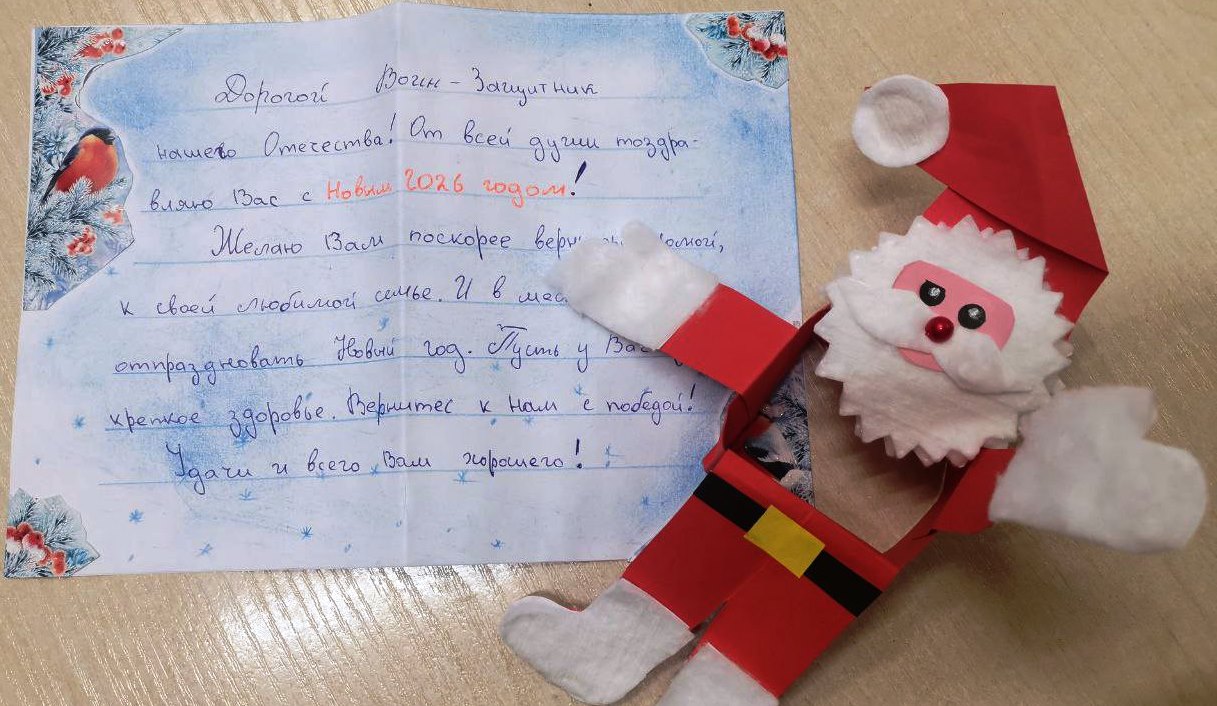 Дорогой Воин - Защитник
нашего Отечества! От всей души поздра-
вляю Вас с Новым 2026 годом!
Желаю Вам поскорее домой,
к своей любимой семье. И в
отпраздновать Новый год. Пусть у Вас
крепкое здоровье. Вернитес к нам с победой!
Удачи и всего Вам хорошего!